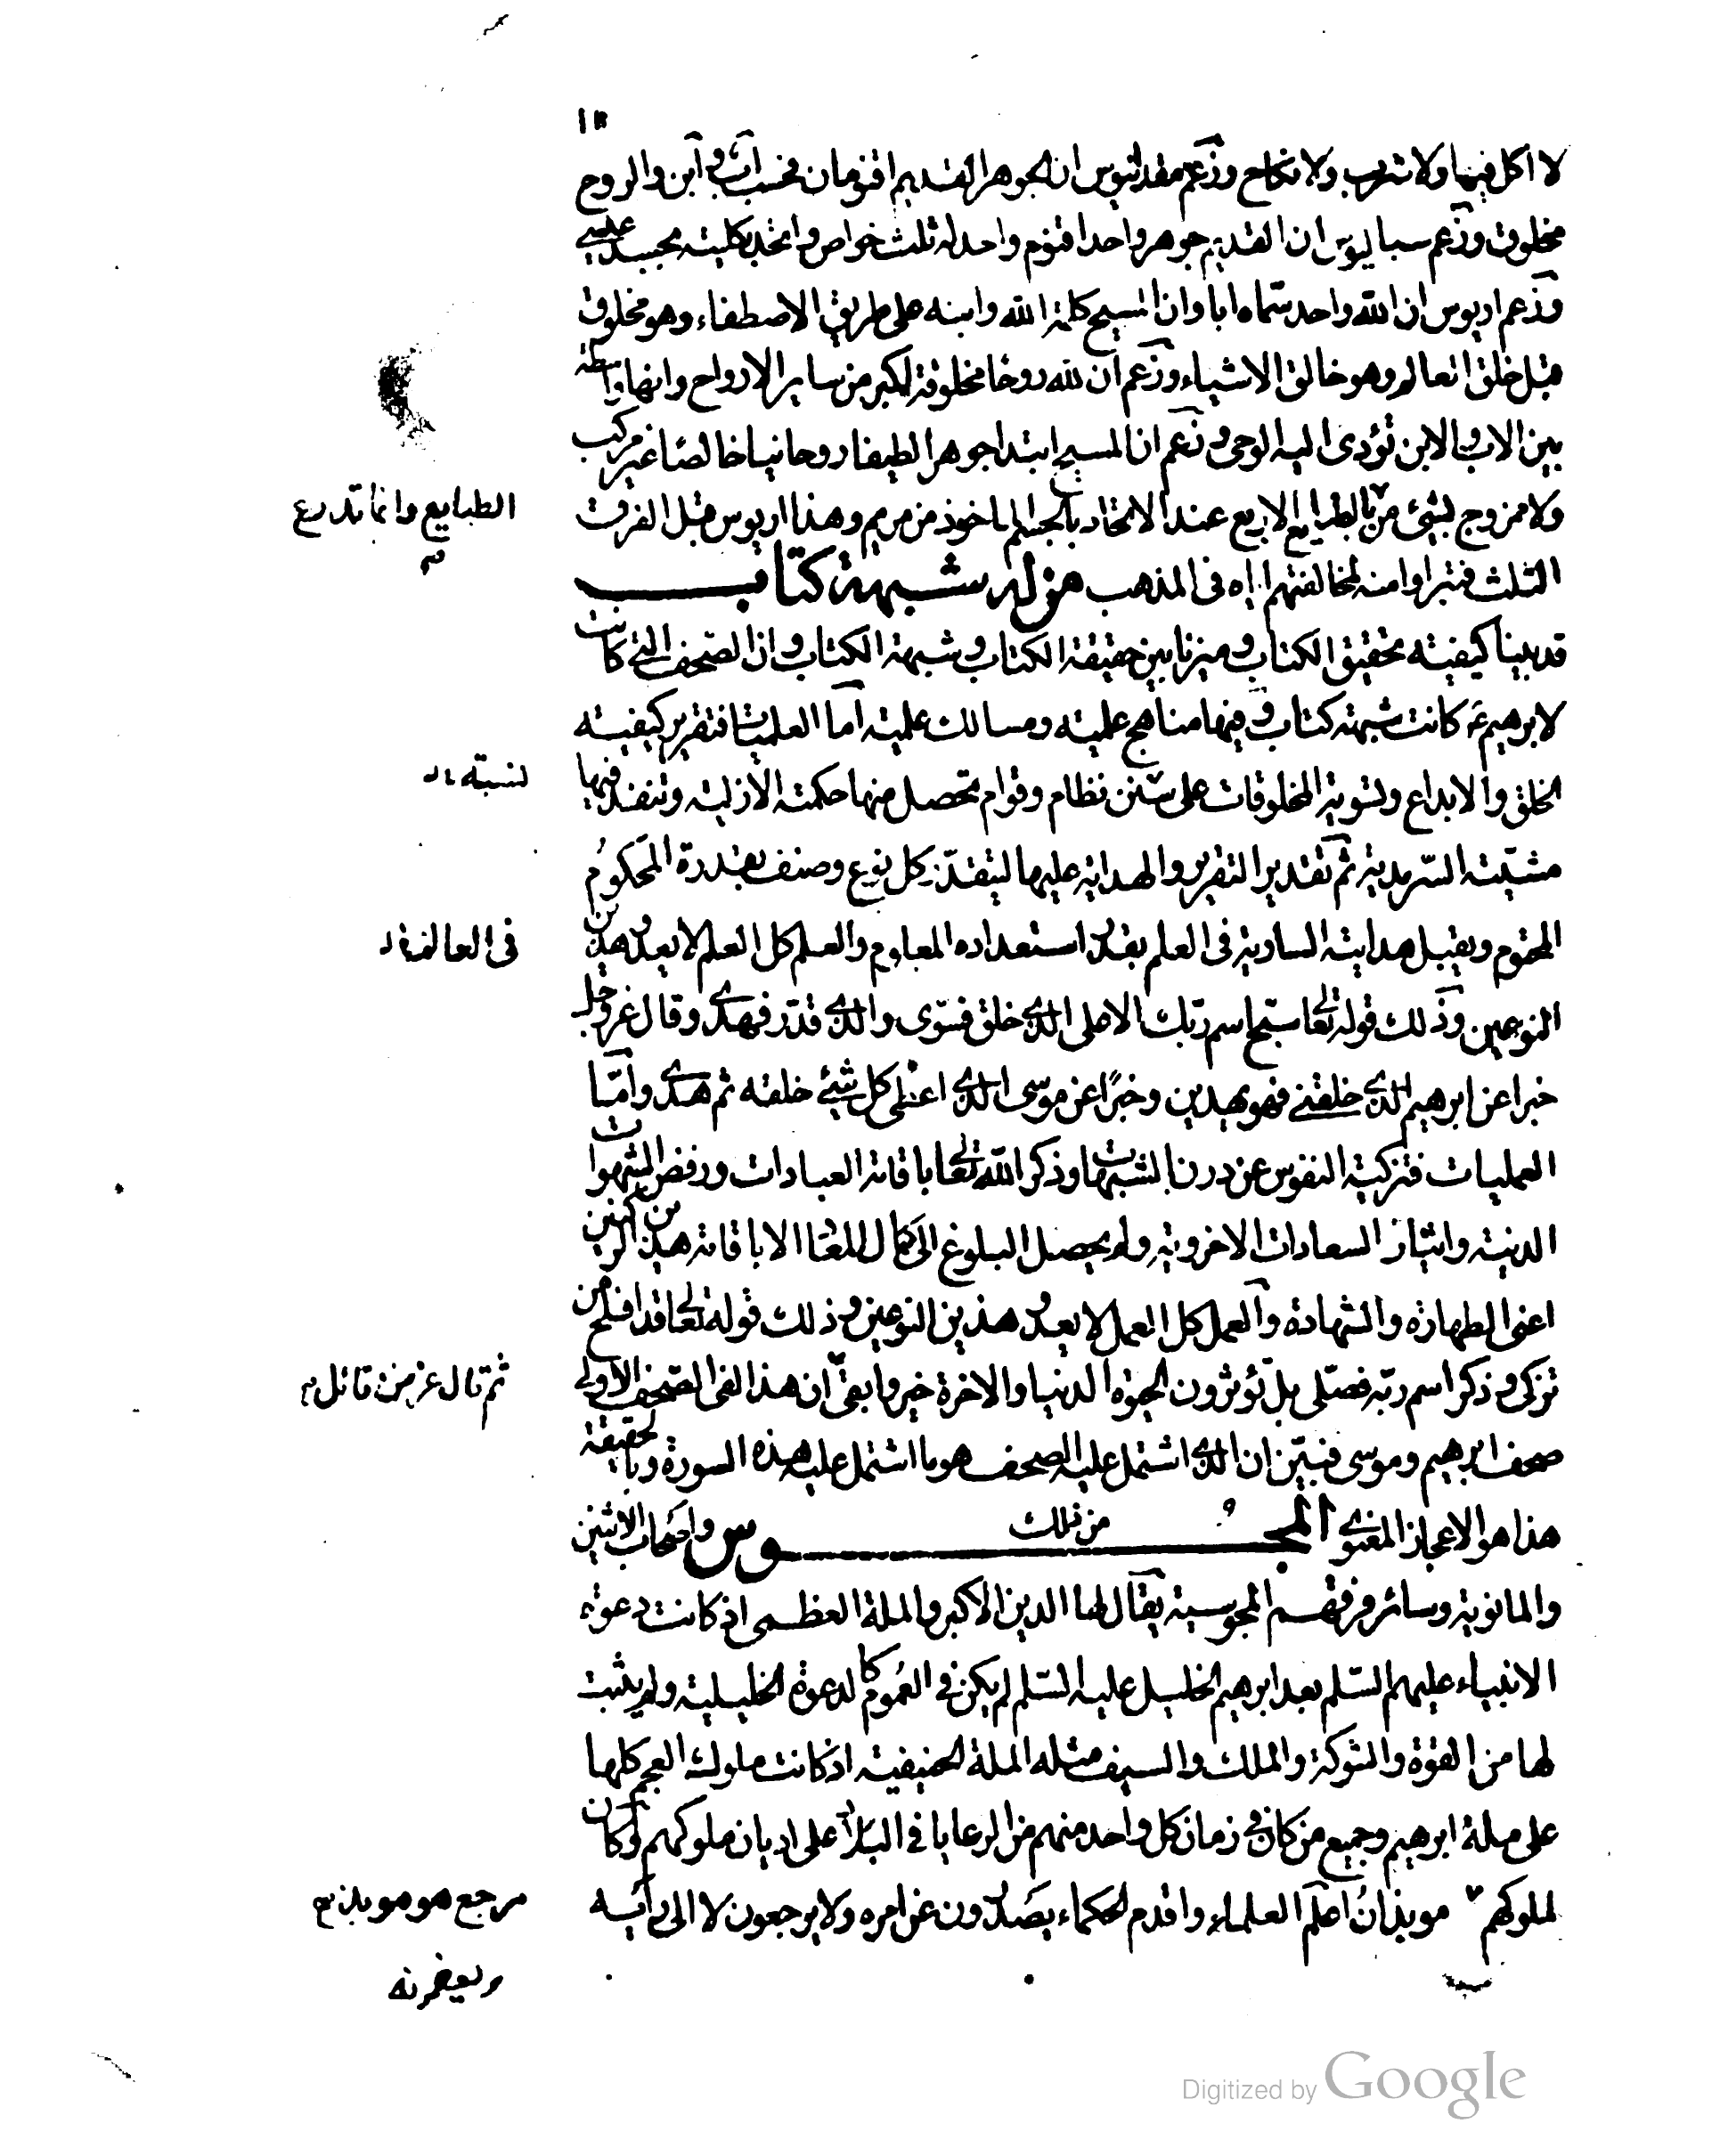 لا اكل فيها ولا شرب ولا نكاح وزعم مقدانيوس ان الجوهر القديم اقنومان فحسب اب وابن والروح
مخلوق وزعم سباليوس ان القديم جوهر واحد اقنوم واحد له ثلث خواص واتحد بكليته بجسد عيسى
وزعم اريوس ان الله واحد سماه ابا وان المسيح كلمة الله وابنه على طريق الاصطفاء وهو مخلوق
قبل خلق العالم وهو خالق الاشياء وزعم ان لله روحا مخلوقة اكبر من ساير الارواح وانها واسطة
بين الاب والابن تؤدى اليه الوحى وزعم ان المسيح ابتدا جوهرا لطيفا روحانيا خالصا غير مركب
ولا ممزوج بشئ من الطبايع الاربع عند الاتحاد بالجسم الماخوذ من مريم وهذا اريوس قبل الفرق
الطبايع وانما تدرع
الثلث فتبراوا منه لمخالفتهم اياه فى المذهب من له شبهة كتاب
قد بينا كيفية تحقيق الكتاب وميزنا بين حقيقة الكتاب وشبهة الكتاب وان الصحف التى كانت
لابرهيم ع كانت شبهة كتاب وفيها مناهج علمية ومسالك عملية اما العلميات فتقرير كيفية
الخلق والابداع وتسوية المخلوقات على سنن نظام وقوام تحصل منها حكمته الازلية وتنفذ فيها
لنسبته
مشيته السرمدية ثم تقدير التقرير والهداية عليها ليتقدر كل نوع وصنف بقدرة المحكوم
المحتوم ويقبل هدايته السارية فى العلم بقدر استعداده المعلوم والعلم كل العلم لا يعدو هذين
فى العالم
النوعين وذلك قوله تعالى سبح اسم ربك الاعلى الذى خلق فسوى والذى قدر فهدى وقال عز وجل
خبرا عن ابرهيم الذى خلقنى فهو يهدين وخبرا عن موسى الذى اعطى كل شئ خلقه ثم هدى واما
العمليات فتزكية النفوس عن درن الشبهات وذكر الله تعالى باقامة العبادات ورفض الشهوات
الدنية وايثار السعادات الاخروية ولم يحصل البلوغ الى كمال المعاد الا باقامة هذين الركنين
اعنى الطهارة والشهادة والعمل كل العمل لا يعدو هذين النوعين وذلك قوله تعالى قد افلح من
تزكى وذكر اسم ربه فصلى بل تؤثرون الحيوة الدنيا والاخرة خير وابقى ان هذا لفى الصحف الاولى
ثم قال عز من قائل
صحف ابرهيم وموسى فبين ان الذى اشتمل عليه الصحف هو ما اشتمل عليه هذه السورة وبالحقيقة
هذا هو الاعجاز المعنوى المجوس من ذلك واصحاب الاثنين
والمانوية وسائر فرقهم المجوسية يقال لها الدين الاكبر والملة العظمى اذ كانت دعوة
الانبياء عليهم السلم بعد ابرهيم الخليل عليه السلم لم يكن فى العموم كالدعوة الخليلية ولم يثبت
لها من القوة والشوكة والملك والسيف مثل الملة الحنيفية اذ كانت ملوك العجم كلها
على ملة ابرهيم وجميع من كان فى زمان كل واحد منهم من الرعايا فى البلاد على اديان ملوكهم وكان
لملوكهم موبذان اعلم العلماء واقدم الحكماء يصدرون عن امره ولا يرجعون الا الى رأيه
مرجع هو موبذ
ويعظمونه
Digitized by Google